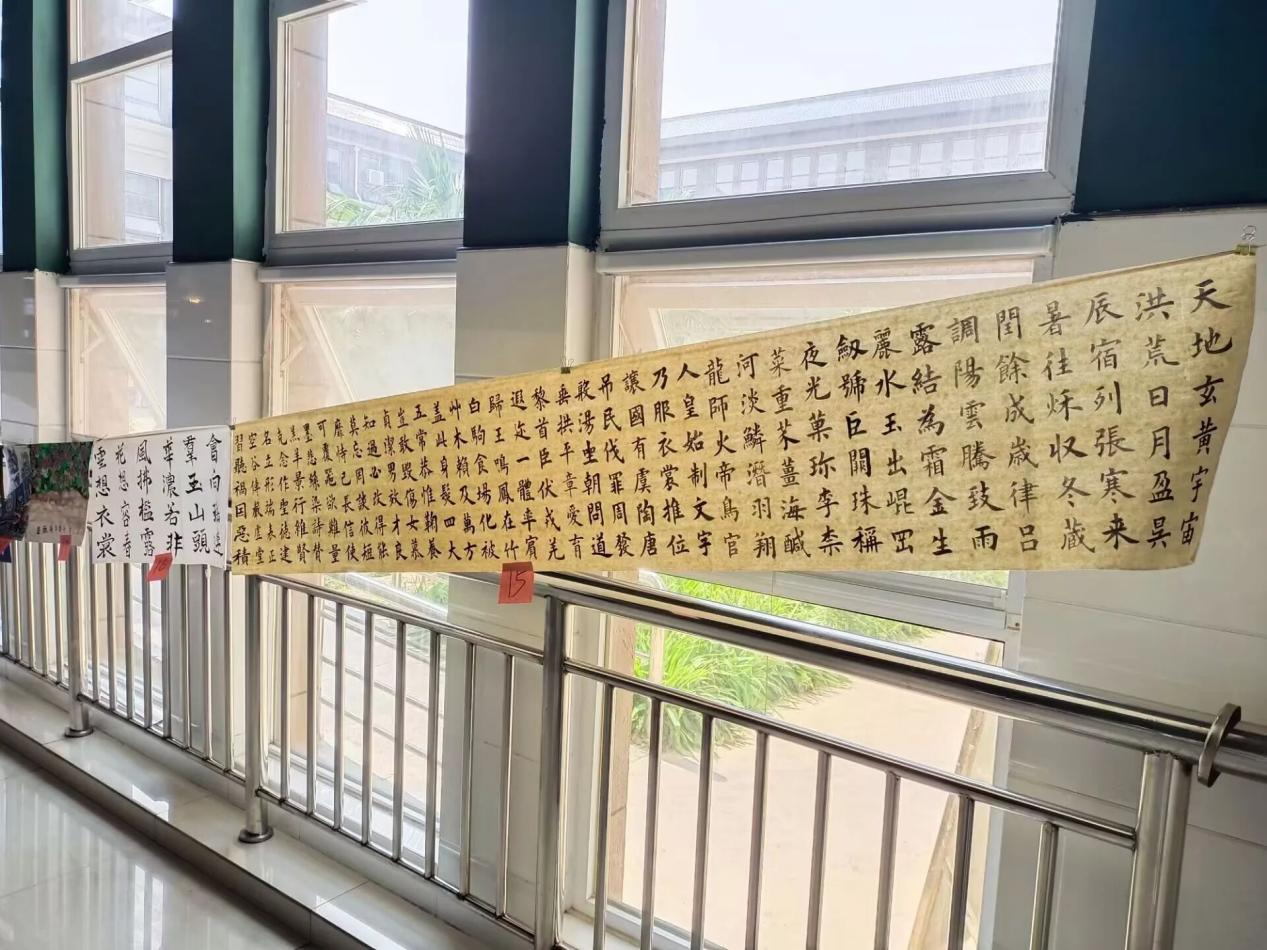 天地玄黄宇宙
洪荒日月盈昃
辰宿列張寒来
暑往秌收冬蔵
閏餘成歳律吕
調陽雲騰致雨
露結為霜金生
麗水玉出崐罡
劔號巨闕珠稱
夜光菓珎李柰
菜重芥薑海醎
河淡鱗潛羽翔
龍師火帝鳥官
人皇始制文字
乃服衣裳推位
讓國有虞陶唐
吊民伐罪周發
殷湯坐朝問道
垂拱平章愛育
黎首臣伏戎羌
遐迩一體率賓
歸王鳴鳳在竹
白駒食場化被
艸木賴及萬方
盖此身髮四大
五常恭惟鞠養
豈敢毁傷女慕
貞潔男效才良
知過必改得能
莫忘罔談彼短
靡恃己長信使
可覆器欲難量
墨悲絲染詩賛
羔羊景行維賢
剋念作聖德建
名立形端表正
空谷傳聲虚堂
習聽禍因惡積
15
雲想衣裳
花想容春
風拂檻露
華濃若非
羣玉山頭
會向瑶